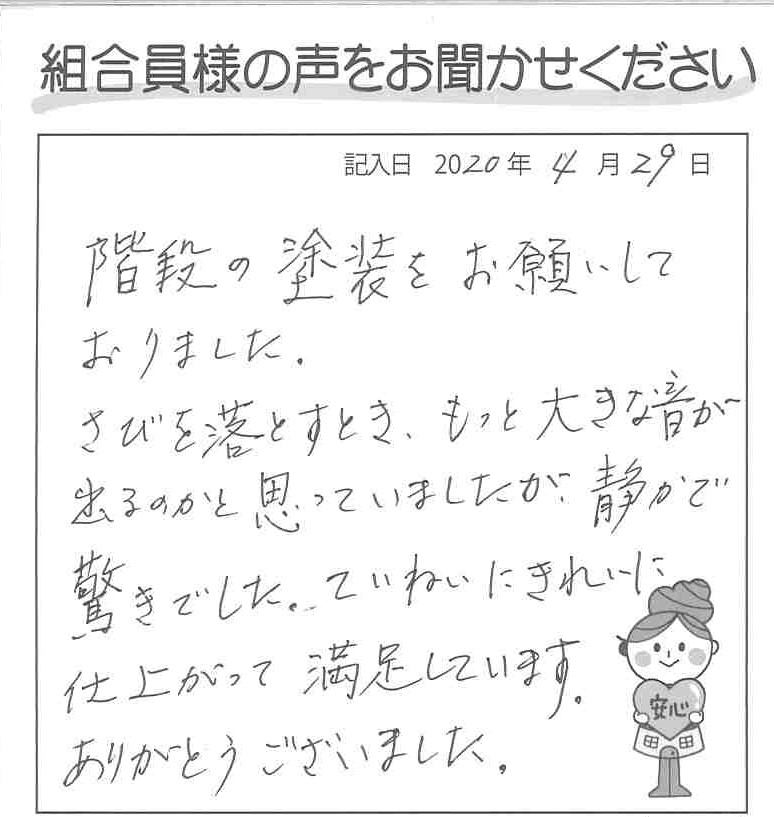 組合員様の声をお聞かせください
記入日 2020年 4月29日
階段の塗装をお願いして
おりました。
さびを落とすとき、もっと大きな音が
出るのかと思っていましたが、静かで
驚きでした。ていねいにきれいに
仕上がって満足しています。
ありがとうございました。
安心